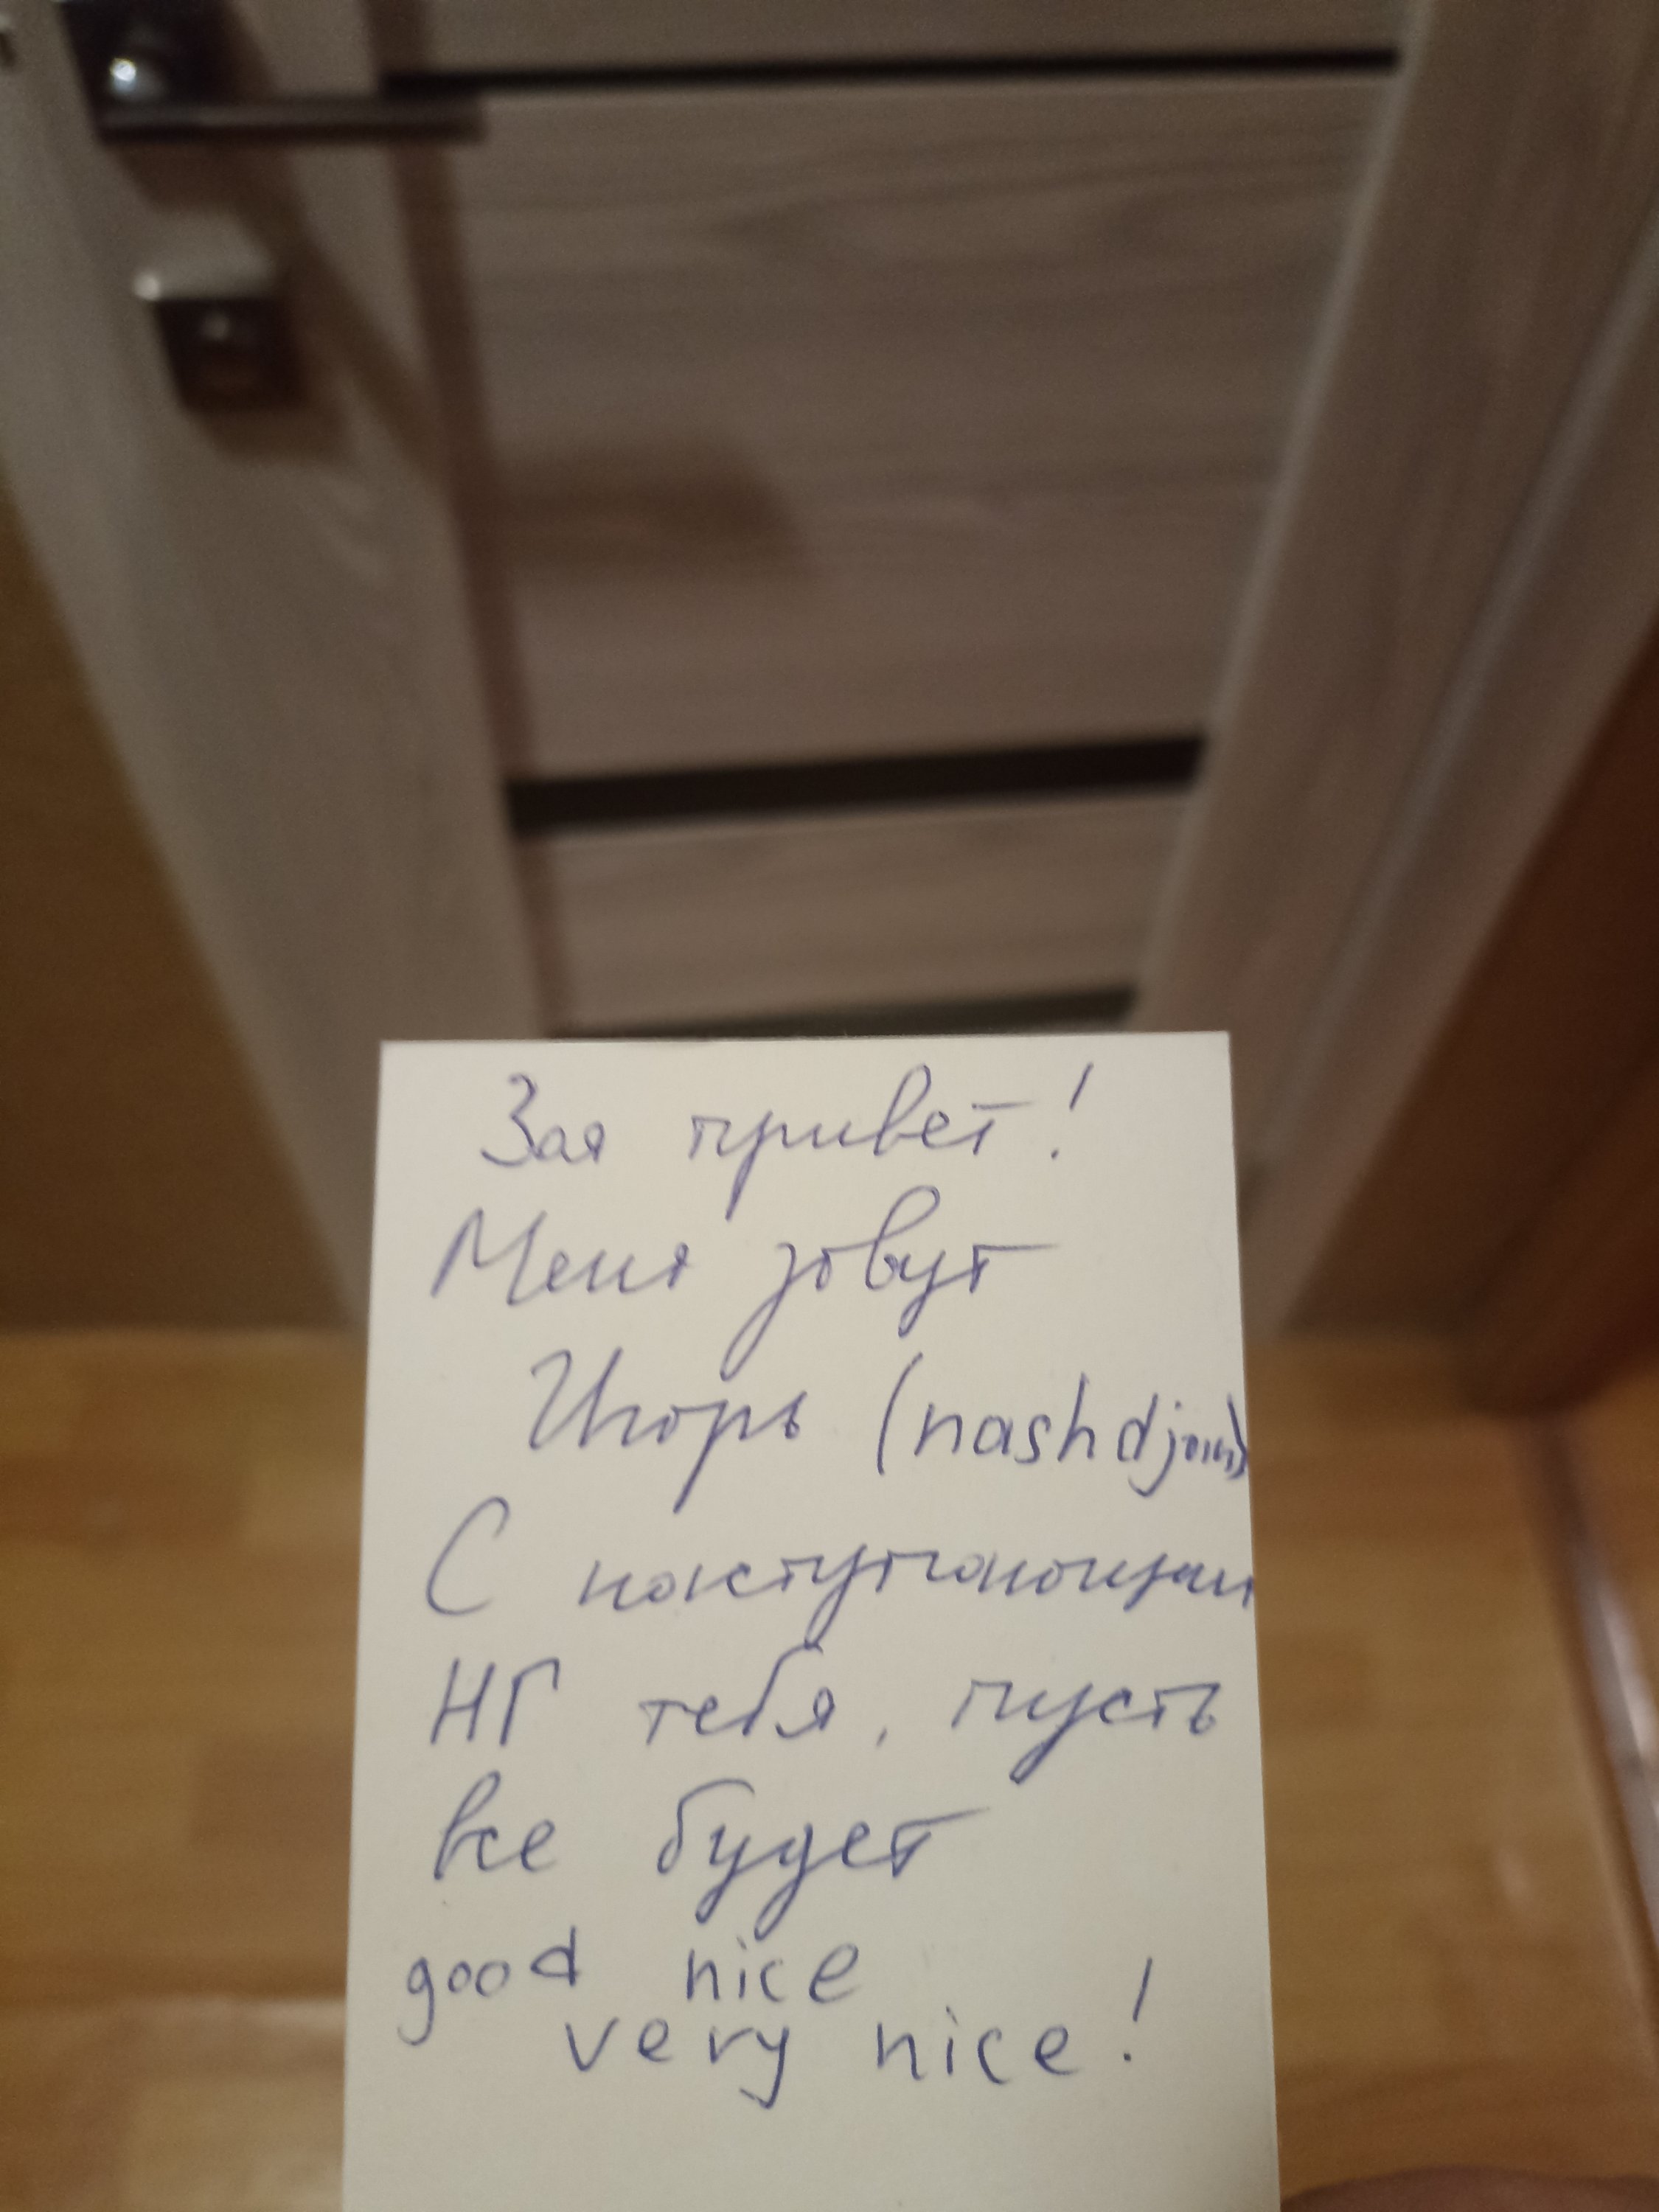 Зая привет!
Меня зовут
Игорь (nashdjoin)
С наступающим
НГ тебя, пусть
все будет
good nice
very nice!